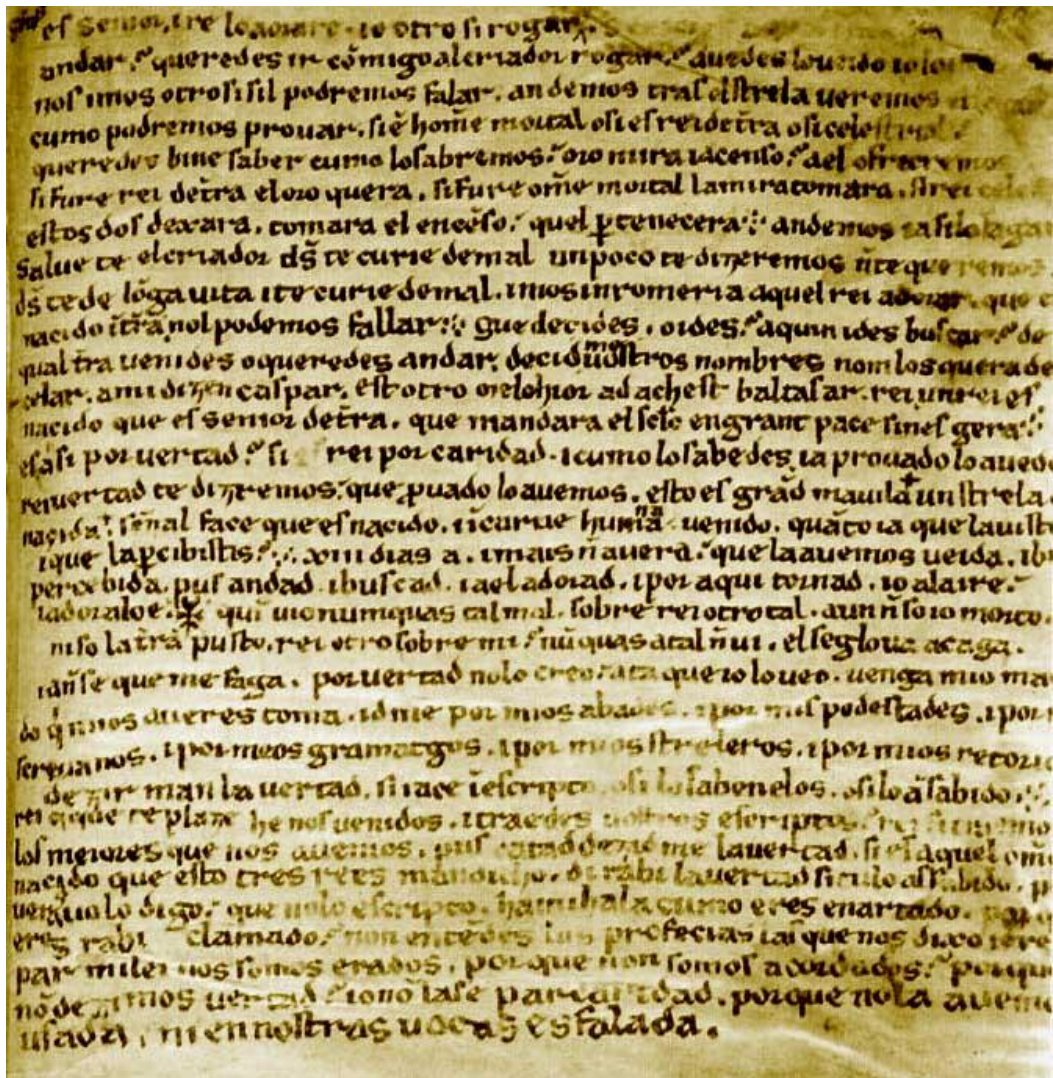 es senior, ire lo aorare. io otro si rogar
andar. queredes ir comigo al criador rogar. auedes lo ueido io lo
nos imos otrosi sil podremos falar. andemos tras el strela ueremos el
cumo podremos prouar. si e hom̄e mortal o si es rei de tr̄a o si celestrial.
queredes bine saber cumo lo sabremos. oro mira i acenso. a el ofreceremos
si fure rei de tr̄a el oro quera. si fure om̄e mortal la mira tomara. si rei
estos dos dexara. tomara el encēso. quel ꝑtenecera. andemos ia si lo
Salue te el criador. ds̄ te curie de mal un poco te dizeremos ñ te queremos
ds̄ te de lōga uita i te curie de mal. imos in romeria aquel rei adorar. que
nacido ī tr̄a. nol podemos fallar. que decides. o ides. a quin ides buscar. de
qual tr̄a uenides o queredes andar. decid me uostros nombres no m los querades
celar. a mi dizen caspar. est otro melchior ad achest baltasar. rei un rei es
nacido que es senior de tr̄a. que mandara el seclo en grant pace sines gera.
es asi por uertad. si rei por caridad. i cumo lo sabedes. ia prouado lo auedes
rei uertad te dizremos. que ꝓuado lo auemos. esto es grād mauila un strela
nacida. senal face que es nacido. i ī carne humana uenido. quāto i a que la uistes
i que la ꝑcibistis. xiii dias a. i mais ñ auera. que la auemos ueida. i bine
percebida. pus andad. i buscad. i a el adorad. i por aqui tornad. io ala ire.
i adoralo e. qui uio numquas tal mal. sobre rei otro tal. aun ñ so io morto.
ni so la tr̄a pusto. rei otro sobre mi. nūquas atal ñ ui. el seglo ua a caga.
ia ñ se que me faga. por uertad no lo creo. ata que io lo ueo. uenga mio maior
do q̄ mios aueres toma. id me por mios abades. i por mis podestades. i por
scriuanos. i por meos gramatgos. i por mios streleros. i por mios retoricos
dezir m an la uertad. si iace ī escripto. o si lo saben elos. o si lo ā sabido.
rei que te plaze he nos uenidos. i traedes uostros escriptos. rei si traemos
los meiores que nos auemos. pus catad dezid me la uertad. si es aquel om̄e
nacido que esto tres rees m an dicho. di rabi la uertad si tu lo as sabido.
uo lo digo. que nolo escripto. hamihala cumo eres enartado. por que
eres rabi clamado. non entēdes las profecias las que nos dixo ieremias
par mi lei nos somos erados. por que non somos acordados. por que
nō dezimos uertad. io nō la se par caridad. por que no la auemos
usada. ni en nostras uocas es falada.